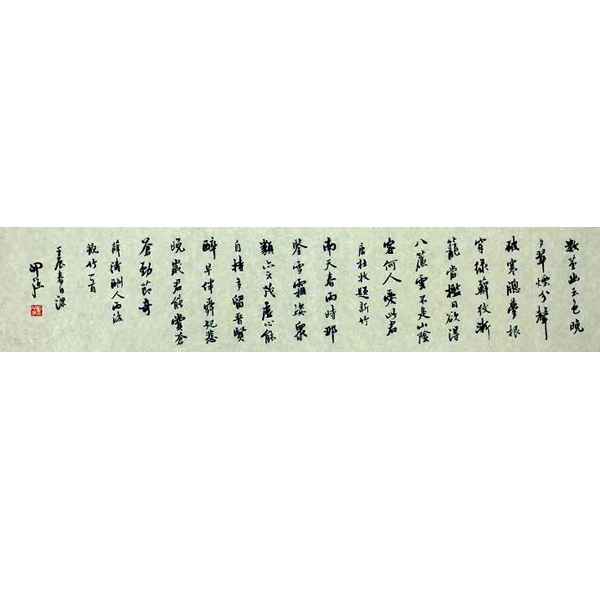 數莖幽玉色晚
夕翠煙分聲
破寒牕夢根
穿綠蘚紋漸
籠當檻日欲得
八簾雲不是山陰
客何人愛此君
唐杜牧題新竹
南天春雨時那
鑒雪霜姿衆
類亦云茂虛心能
自持多留晉賢
醉早伴舜妃悲
晚歲君能賞蒼
蒼勁節奇
薛濤酬人雨後
翫竹一首
壬辰春日錄